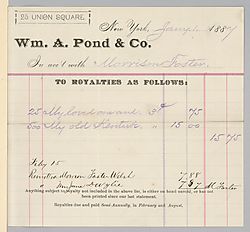 25 UNION SQUARE.
New York, Jany 1 1887
Wm. A. Pond & Co.
In acc't with Morrison Foster
TO ROYALTIES AS FOLLOWS:
25 Ally loved one and 3¢ 75
500 My old Kentuck " 15 00
15 75
Feby 15
Morrison Foster 7 88
7 87
Anything subject to royalty not included in the above list, is either on hand unsold, or has not
been printed since our last statement.
Royalties due and paid Semi Annually, in February and August.